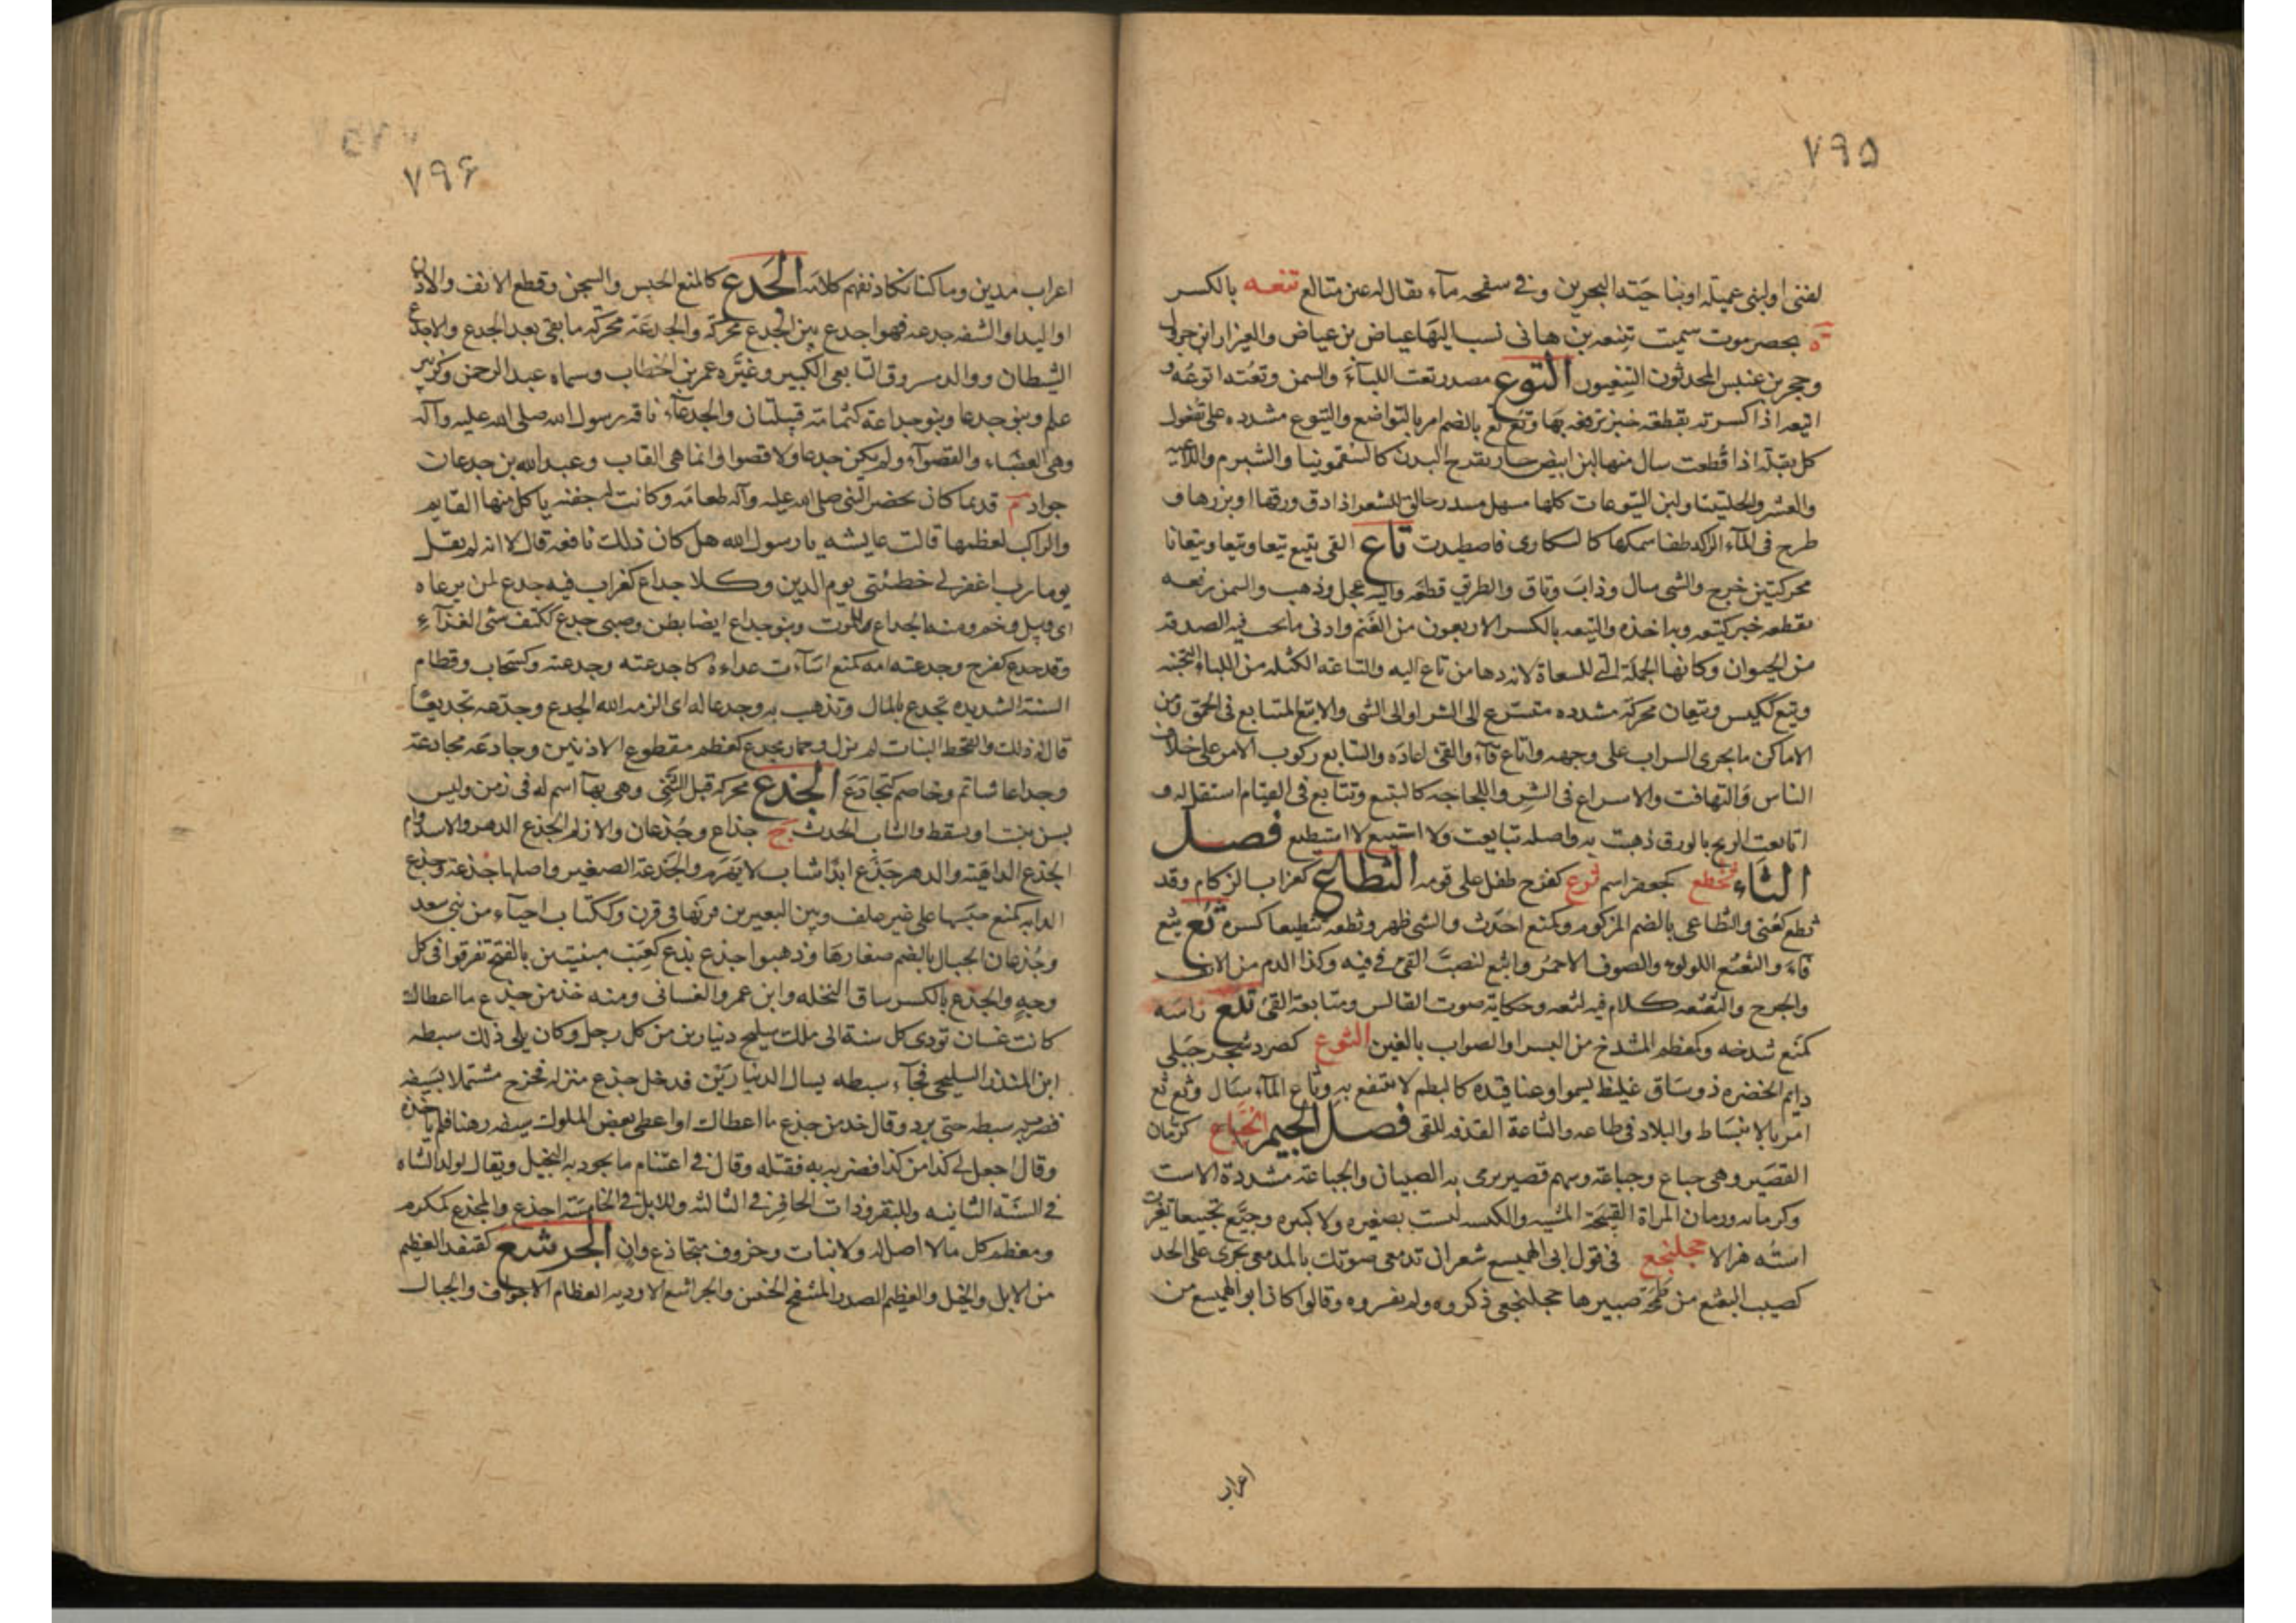 ٧٩٥
لغنى اولبنى عميلة اوبناحية البحرين وفى سفحه مآء يقال له عين متالع تنعه بالكسر
ة بحضرموت سميت بتنعه بن هانى نسب اليها عياض بن عياض والعيزار ابن جرول
وحجر بن عنبس المحدثون التنعيون التوع مصدر تعت اللبأ والسمن وتعته اتوعه و
اتيعه اذا كسرته بقطعة خبز ترفعه بها وتع تع بالضم امر بالتواضع واليتوع مشدده على تفعول
كل بقلة اذا قطعت سال منها لبن ابيض حار يقرح البدن كالسقمونيا والشبرم واللاعيه
والعشر والحلتيتا ولبن اليتوعات كلها مسهل مدر حالق للشعر اذا دق ورقها او بزرها و
طرح فى المآء الراكد طفا سمكها كالسكارى فاصطيدت تاع القى يتيع تيعا وتيعا وتيعانا
محركتين خرج والشى سال وذاب وتاق والطريق قطعه واليه عجل وذهب والسمن رفعه
بقطعه خبز كتيعه وبه اخذه والتيعه بالكسر الاربعون من الغنم وادنى ما يجب فيه الصدقه
من الحيوان وكانها الجملة التى للسعاة لا نردها من تاع اليه والتاعه الكتله من اللباء الثخينه
وتيع ككيس وتيعان محركة مشدده متسرع الى الشر او الى الشى والاتيع المتتابع فى الحمق ومن
الاماكن ما يجرى السراب على وجهه واتاع قآء والقئ اعاده والتتابع ركوب الامر على خلاف
الناس والتهافت والاسراع فى الشر واللجاجه كالتتيع وتتايع فى القيام استقل له و
اتايعت الريح بالورق ذهبت به واصله تتايعت ولا استيع لا استطيع فصل
الثاء ثخطع كجعفر اسم ثرع كفرح طفل على قومه الثطاع كغراب الزكام وقد
ثطع كعنى والثطاعى بالضم المزكوم وكمنع احدث والشى ظهر وثطعه تثطيعا كسره ثع يثع
قآء والثعثع اللولوه والصوف الاحمر وانثع انصب القئ فى فيه وكذا الدم من الانف
والجرح والثعثعه كلام فيه لثغه وحكاية صوت القالس ومتابعة القئ ثلع راسه
كمنع شدخه وكمعظم المشدخ من البسر او الصواب بالغين الثوع كصرد شجر جبلى
دايم الخضره ذو ساق غليظ يسمو وعناقيده كالبطم لا ينتفع به وثاع المآء سال وثع ثع
امر بالانبساط والبلاد فى طاعه والثاعة القذفه للقى فصل الجيم الجباع كرمان
القصير وهى جباع وجباعة وسهم قصير يرمى به الصبيان والجباعة مشددة الاست
وكرمانه ورمان المراة القبيحة المشيه واللبسه ليست بصغيره ولا كبيره وجبع تجبيعا تغيرت
استه هزالا جحلنجع فى قول ابى الهميسع شعر ان تدمعى صوتك بالمدمعى يجرى على الخد
كصيب الثعثع من طمحة صبيرها جحلنجعى ذكروه ولم يفسروه وقالوا كان ابو الهميسع من
اعراب
٧٩۶
اعراب مدين وما كنا نكاد نفهم كلامه الجدع كالمنع الحبس والسجن وقطع الانف والاذن
او اليد او الشفه جدعه فهو اجدع بين الجدع محركة والجدعة محركة ما بقى بعد الجدع والاجدع
الشيطان ووالد مسروق التابعى الكبير وغيره عمر بن الخطاب وسماه عبد الرحمن وكزبير
علم وبنو جدعا وبنو جداعة كثمامة قبيلتان والجدعآء ناقه رسول الله صلى الله عليه وآله
وهى العضباء والقصوآء ولم يكن جدعا ولا قصوا وانما هى القاب وعبد الله بن جدعان
جواد م قديما كان يحضر النبى صلى الله عليه وآله طعامه وكانت له جفنه ياكل منها القايم
والراكب لعظمها قالت عايشه يا رسول الله هل كان ذلك نافعه قال لا انه لم يقل
يوما رب اغفر لى خطيئتى يوم الدين وكلا جداع كغراب فيه جدع لمن يرعاه
اى وبيل وخم ومنه الجداع للموت وبنو جداع ايضا بطن وصبى جدع ككتف سئ الغذآء
وقد جدع كفرح وجدعته امه كمنع اسآءت غداءه كاجدعته وجدعته وكسحاب وقطام
السنة الشديده تجدع بالمال وتذهب به وجدعا له اى الزمه الله الجدع وجدعه تجديعا
قال له ذلك والقحط النبات لم يزل وحمار مجدع كمعظم مقطوع الاذنين وجادعه مجادعة
وجداعا شاتم وخاصم كتجادع الجذع محركه قبل الثنى وهى بهآ اسم له فى زمن وليس
بسن تنبت او يسقط والشاب الحدث ج جذاع وجذعان والازلم الجذع الدهر والاسد وام
الجذع الداهية والدهر جذع ابدا شاب لا يهرم والجذعة الصغير واصلها جذعة وجذع
الدابه كمنع حبسها على غير علف وبين البعيرين قرنهما فى قرن وككتاب احيآء من بنى سعد
وجذعان الجبال بالضم صغارها وذهبوا جذع بذع كعنب مبنيتين بالفتح تفرقوا فى كل
وجه والجذع بالكسر ساق النخله وابن عمرو الغسانى ومنه خذ من جذع ما اعطاك
كانت غسان تودى كل سنة الى ملك سليح دينارين من كل رجل وكان يلى ذلك سبطه
ابن المنذر السليحى فجآء سبطه يسال الدينارين فدخل جذع منزله فخرج مشتملا بسيفه
فضرب به سبطه حتى برد وقال خذ من جذع ما اعطاك او اعطى بعض الملوك سيفه رهنا فلم ياخذه
وقال اجعل لى كذا من كذا فضربه به فقتله وقال فى اغتنام ما يجود به البخيل ويقال لولد الشاه
فى السنة الثانيه وللبقر وذات الحافر فى الثالثه وللابل فى الخامسة اجذع والمجذع كمكرم
ومعظم كل ما لا اصل له ولا ثبات وخروف متجاذع وان الجرشع كقنفذ العظيم
من الابل والخيل والعظيم الصدر المنتفخ الجنبين والجراشع الاوديه العظام الاجواف والجبال